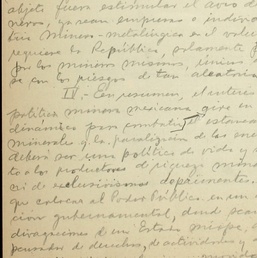 objeto fuera estimular el
neros, ya sean empresas o individuos
tria Minero-metalúrgica en el volu
requiere la República, solamente p
por los mineros mismos, únicos
se con los riesgos de tan aleatoria
IV.- En resumen, el interés
política minera mexicana gire en
dinarias para combatir el estanca
minerales y la paralización de las
deberá ser una política de vida y
to a los productores de riqueza mine
ri de exclusivismos deprimentes.
que colocar al Poder Público, en un
cion gubernamental, donde sean
divagaciones de un Estado miope,
pensador de derechos, de actividades y